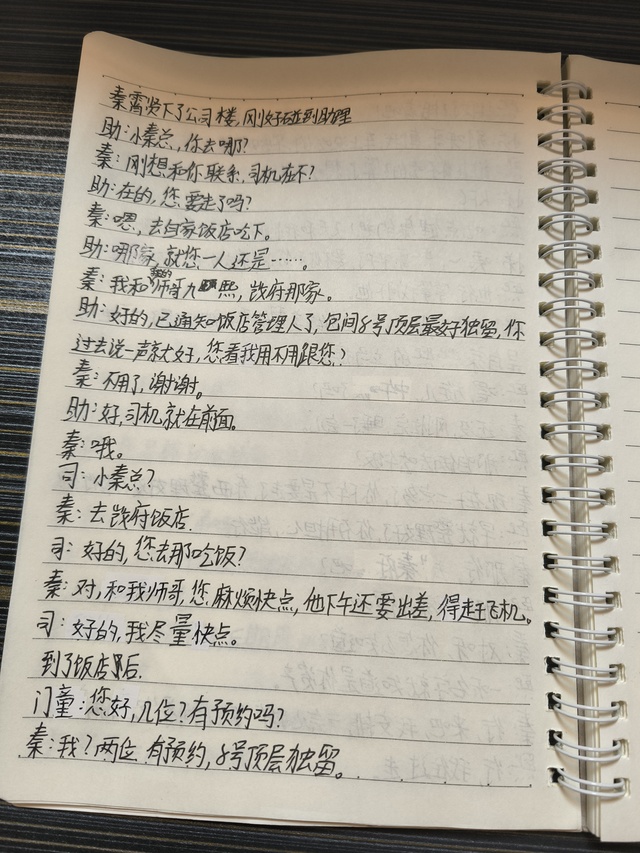 秦霄贤下了公司楼,刚好碰到助理
助:小秦总,你去哪?
秦:刚想和你联系,司机在不?
助:在的,您要走了吗?
秦:嗯,去自家饭店吃下。
助:哪家,就您一人还是……。
秦:我和师哥九熙,饯府那家。
助:好的,已通知饭店管理人了,包间8号顶层最好独留,你
过去说一声就好,您看我用不用跟您?
秦:不用了,谢谢。
助:好,司机就在前面。
秦:哦。
司:小秦总?
秦:去饯府饭店.
司:好的,您去那吃饭?
秦:对,和我师哥,您麻烦快点,他下午还要出差,得赶飞机。
司:好的,我尽量快点。
到了饭店后.
门童:您好,几位?有预约吗?
秦:我?两位 有预约,8号顶层独留。